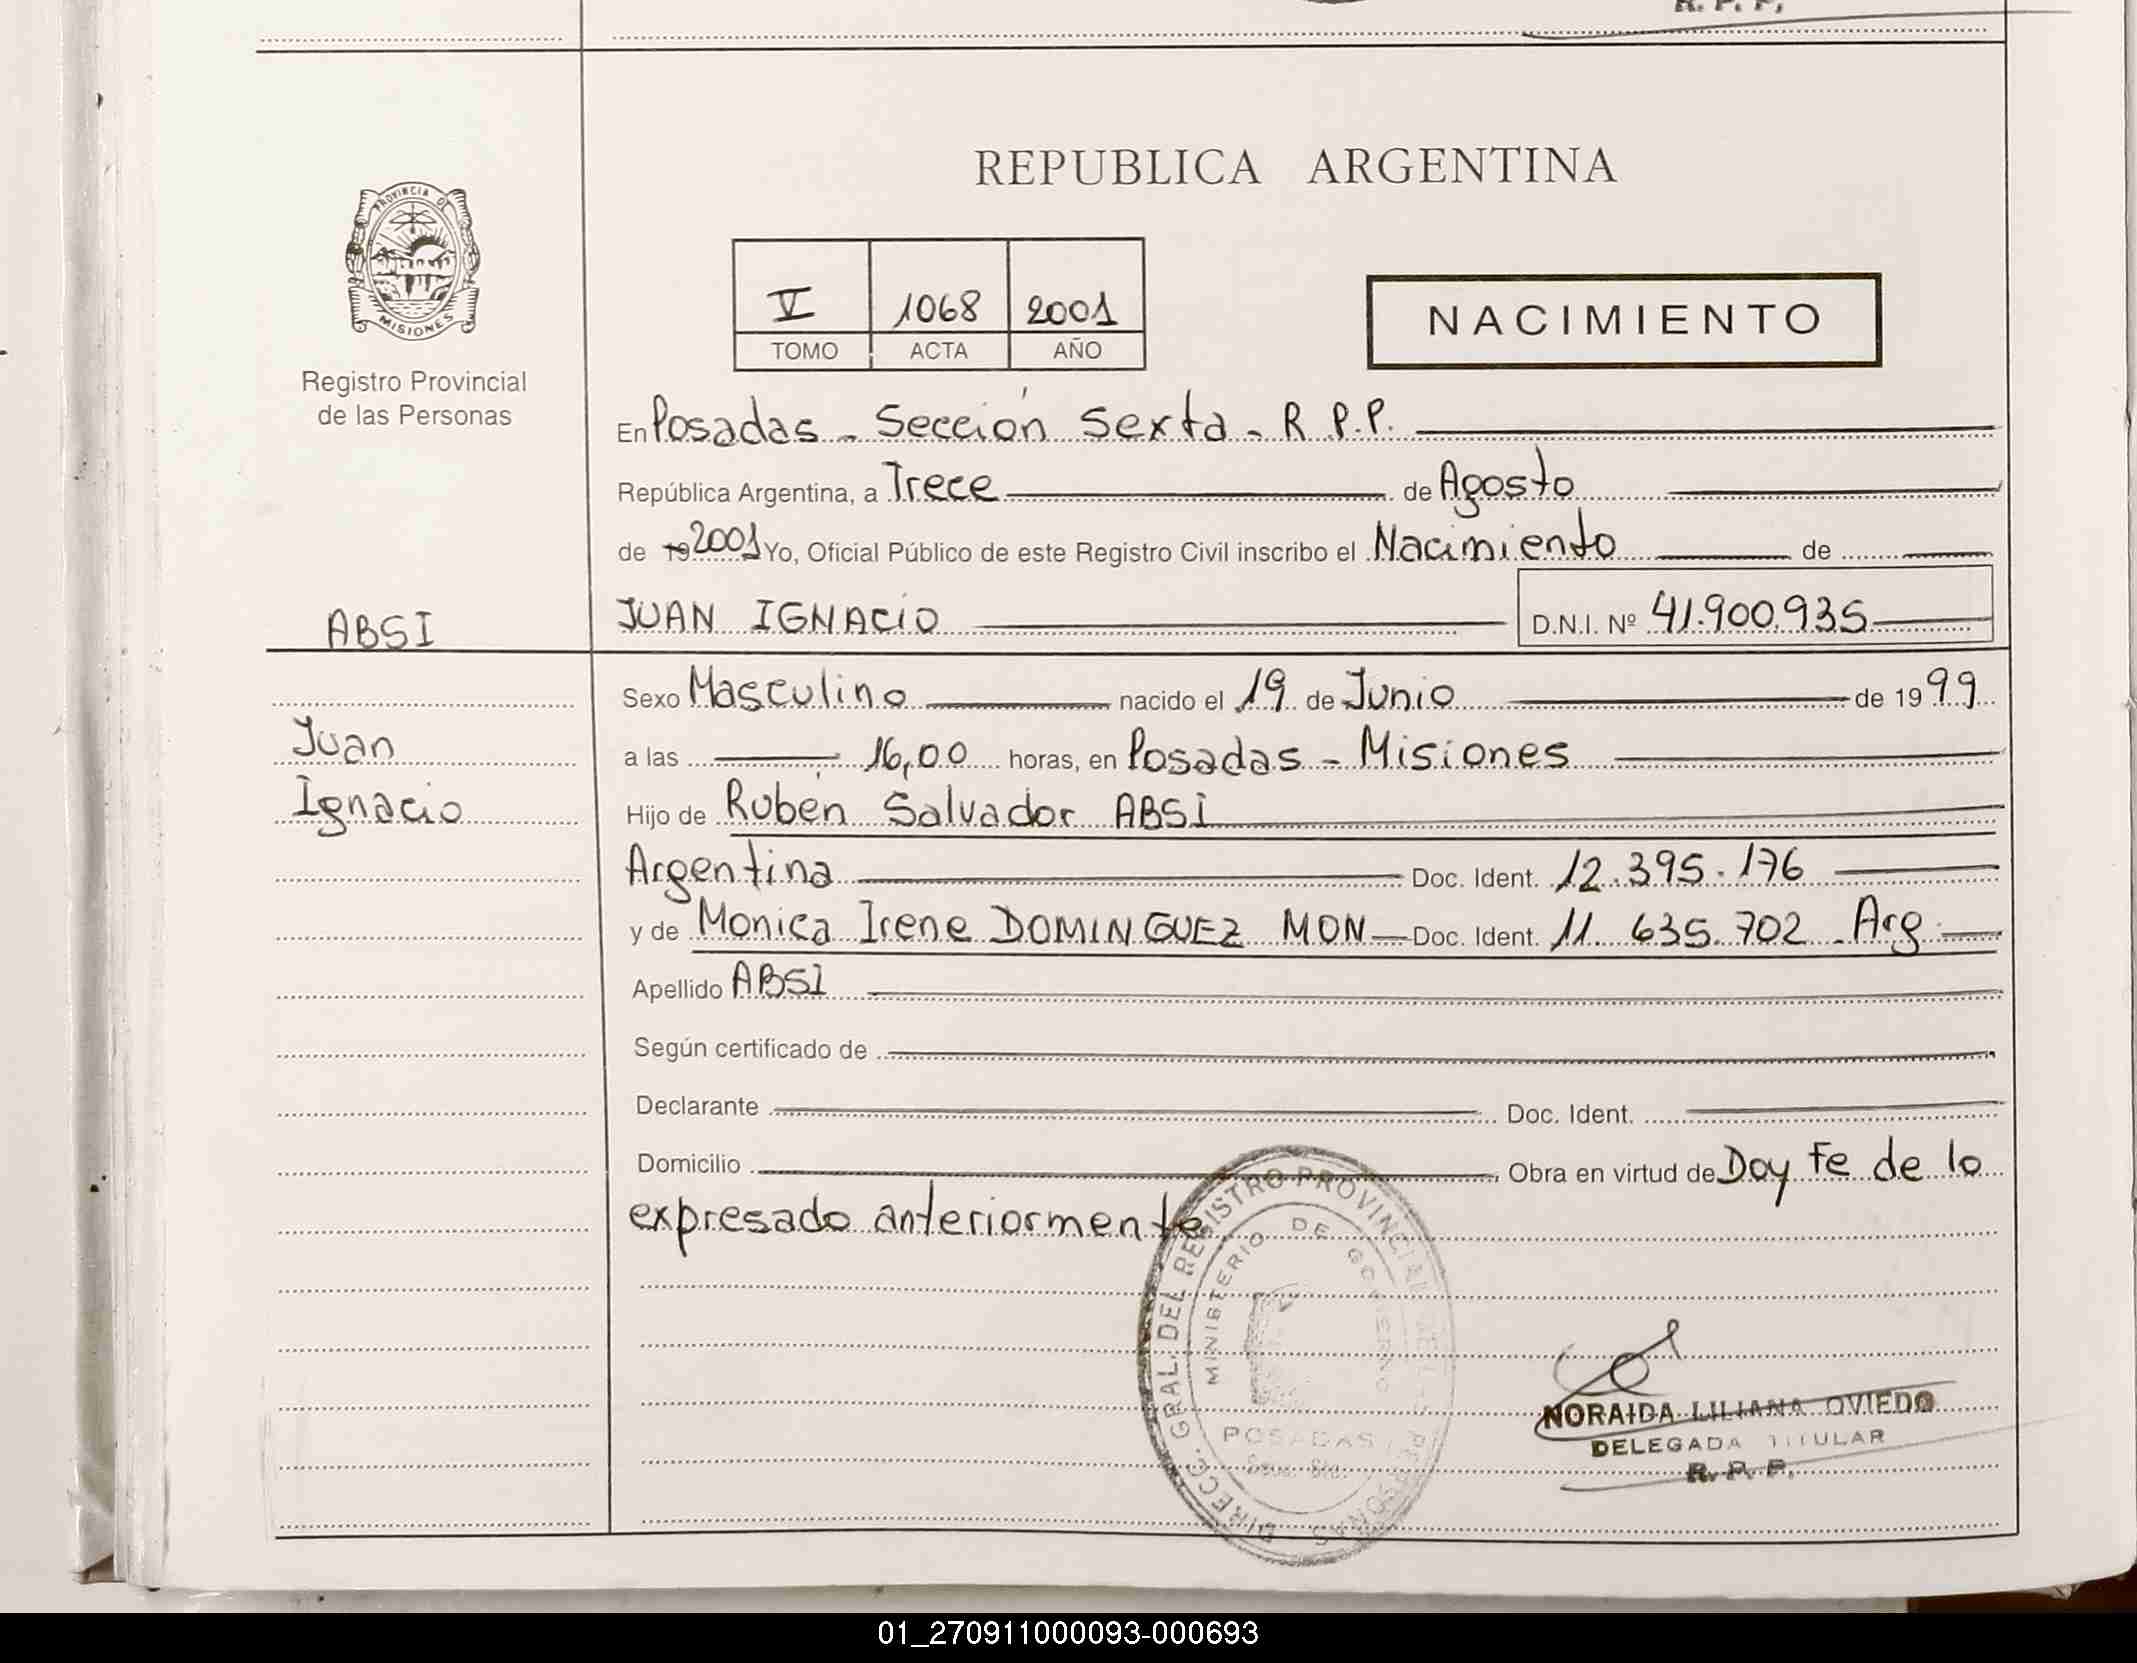 R. P. P.
PROVINCIA DE
MISIONES
Registro Provincial
de las Personas
REPUBLICA ARGENTINA
V 1068 2001
TOMO ACTA AÑO
NACIMIENTO
En Posadas - Sección Sexta - R.P.P.
República Argentina, a Trece de Agosto
de 19 2001 Yo, Oficial Público de este Registro Civil inscribo el Nacimiento de
ABSI JUAN IGNACIO D.N.I. Nº 41.900.935
Sexo Masculino nacido el 19 de Junio de 1999
Juan a las 16,00 horas, en Posadas - Misiones
Ignacio Hijo de Rubén Salvador ABSI
Argentina Doc. Ident. 12.395.176
y de Monica Irene DOMINGUEZ MON Doc. Ident. 11.635.702 - Arg
Apellido ABSI
Según certificado de
Declarante Doc. Ident.
Domicilio , Obra en virtud de Doy Fe de lo
expresado anteriormente
DIRECC. GRAL. DEL REGISTRO PROVINCIAL DE LAS PERSONAS
MINISTERIO DE GOBIERNO
POSADAS
NORAIDA LILIANA OVIEDO
DELEGADA TITULAR
R. P. P.
01_270911000093-000693